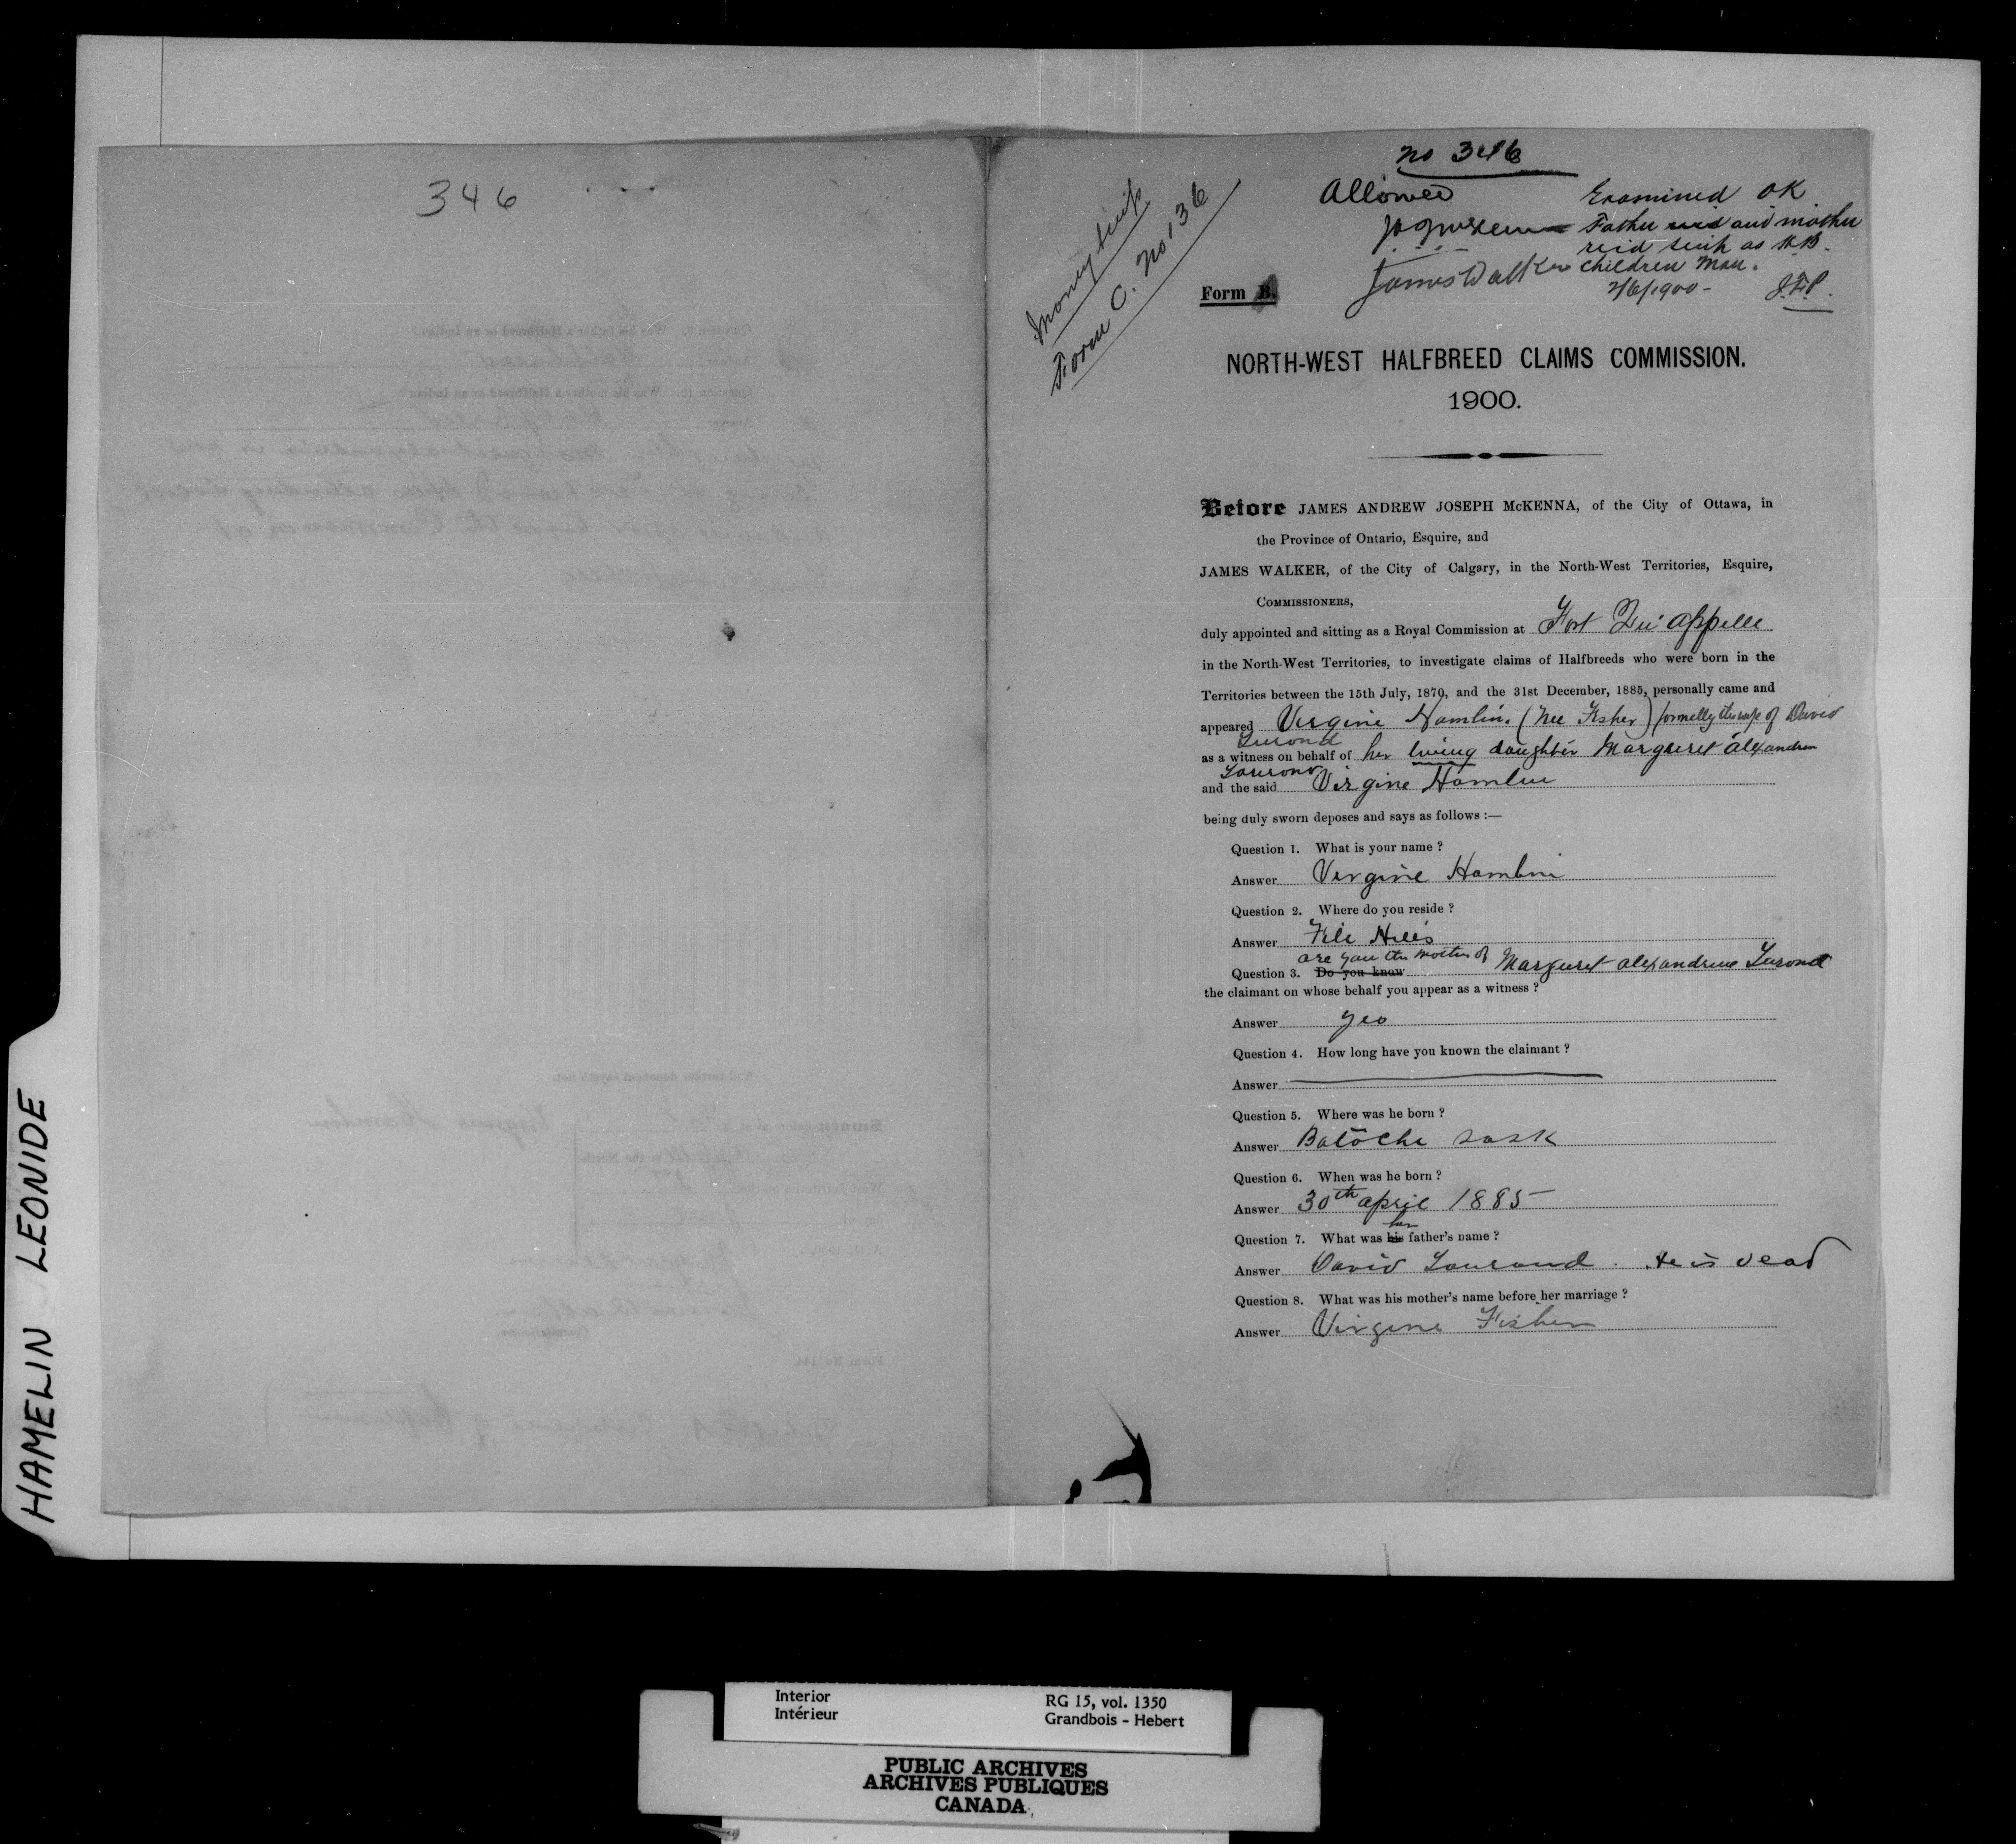 346
no 346
Allowed
Examined OK
Father and mother
rec'd scrip as H.B.
children Man.
2/6/1900 - J.F.P.
James Walker
Money Scrip
Form C. No 136
Form B.
NORTH-WEST HALFBREED CLAIMS COMMISSION.
1900.
Before JAMES ANDREW JOSEPH McKENNA, of the City of Ottawa, in
the Province of Ontario, Esquire, and
JAMES WALKER, of the City of Calgary, in the North-West Territories, Esquire,
COMMISSIONERS,
duly appointed and sitting as a Royal Commission at Fort Qu'appelle
in the North-West Territories, to investigate claims of Halfbreeds who were born in the
Territories between the 15th July, 1870, and the 31st December, 1885, personally came and
appeared Virgine Hamlin. (nee Fisher) formelly the wife of David
Tourond
as a witness on behalf of her living daughter Margueret alexandrine
Tourond
and the said Virgine Hamlin
being duly sworn deposes and says as follows :—
Question 1. What is your name ?
Answer Virgine Hamlin
Question 2. Where do you reside ?
Answer File Hills
are you the mother of
Question 3. Do you know Margueret alexandrine Tourond
the claimant on whose behalf you appear as a witness ?
Answer yes
Question 4. How long have you known the claimant ?
Answer
Question 5. Where was he born ?
Answer Batoche Sask
Question 6. When was he born ?
Answer 30th april 1885
her
Question 7. What was his father's name ?
Answer David Tourond. He is dead
Question 8. What was his mother's name before her marriage ?
Answer Virgine Fisher
HAMELIN LEONIDE
Interior
Intérieur
RG 15, vol. 1350
Grandbois - Hebert
PUBLIC ARCHIVES
ARCHIVES PUBLIQUES
CANADA